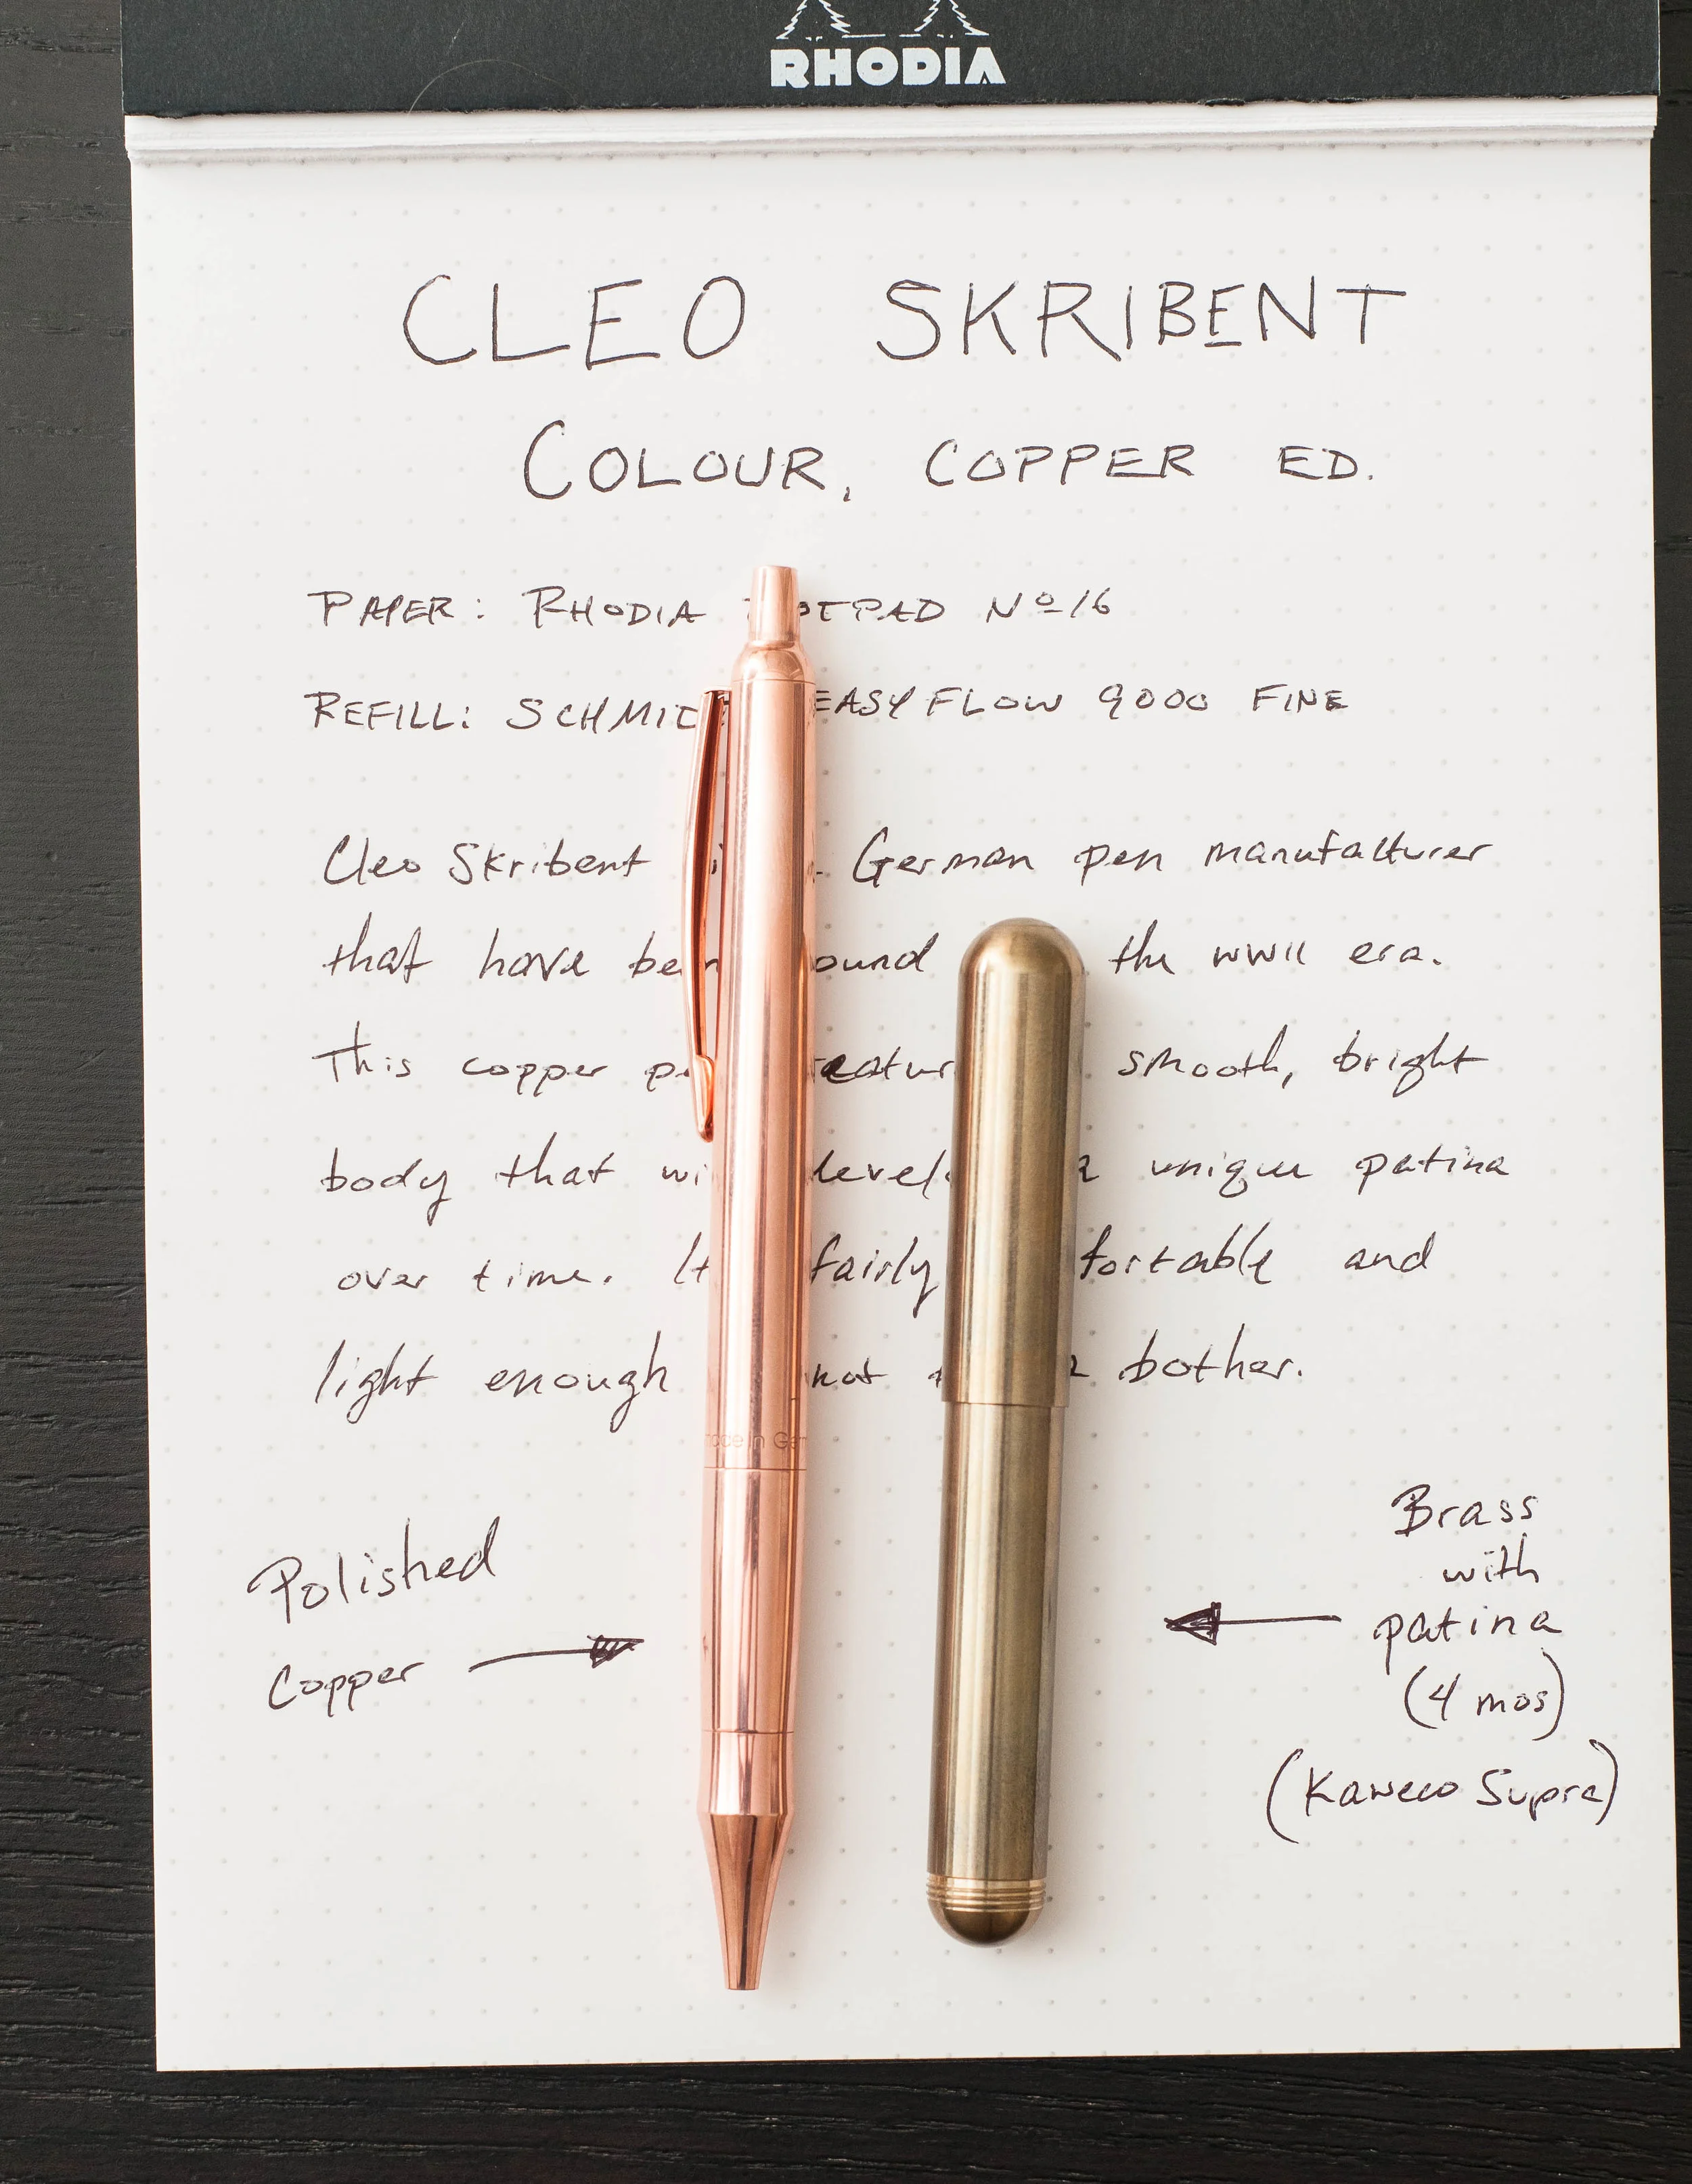 RHODIA
CLEO SKRIBENT
COLOUR, COPPER ED.
PAPER: RHODIA NOTEPAD Nº16
REFILL: SCHMIDT EASYFLOW 9000 FINE
Cleo Skribent German pen manufacturer
that have been around the WWII era.
This copper smooth, bright
body that unique patina
over time. fairly comfortable and
light enough not bother.
made in Ger
Polished
Copper
Brass
with
patina
(4 mos)
(Kaweco Supra)